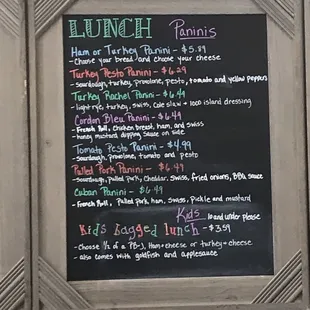 LUNCH Paninis
Ham or Turkey Panini - $5.89
- Choose your bread and choose your cheese
Turkey Pesto Panini - $6.29
- sourdough, turkey, provolone, pesto, tomato and yellow peppers
Turkey Rachel Panini - $6.49
- light rye, turkey, swiss, Cole slaw + 1000 island dressing
Cordon Bleu Panini - $6.49
- French Roll, Chicken breast, ham, and swiss
- honey mustard dipping sauce on side
Tomato Pesto Panini - $4.99
- Sourdough, Provolone, tomato and pesto
Pulled Pork Panini - $6.49
- Sourdough, Pulled Pork, Cheddar, Swiss, fried onions, BBQ sauce
Cuban Panini - $6.49
- French Roll, Pulled Pork, ham, Swiss, Pickle and mustard
Kids 10 and under please
Kids Bagged lunch - $3.59
- Choose 1/2 of a PB-J, Ham+cheese or turkey+cheese
- also comes with goldfish and applesauce